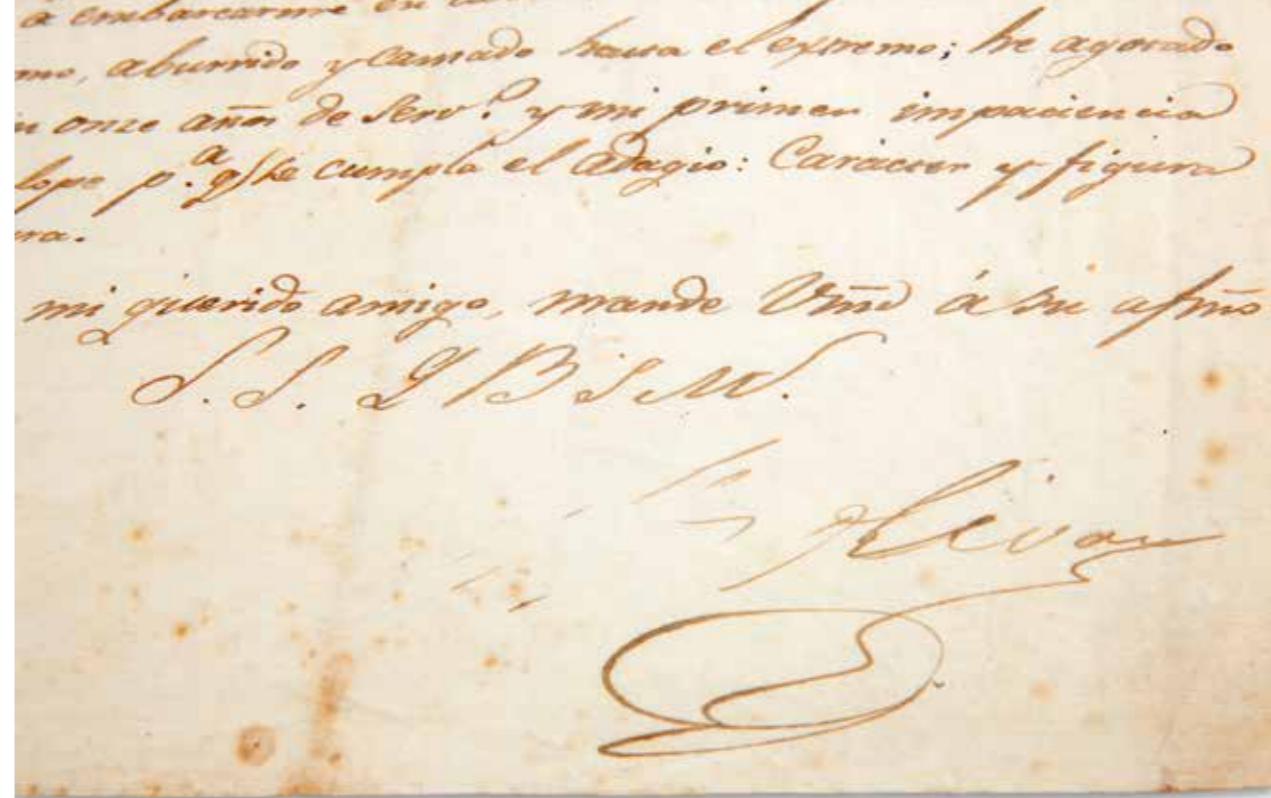 á embarcarme en
mo, aburrido y cansado hasta el extremo; he agotado
n onze años de Serv.º y mi primer impaciencia
lope p.ª q̃ se cumpla el adagio: Caracter y figura
ra.
mi querido amigo, mande Vmd á su afmo
S. S. Q B S M.